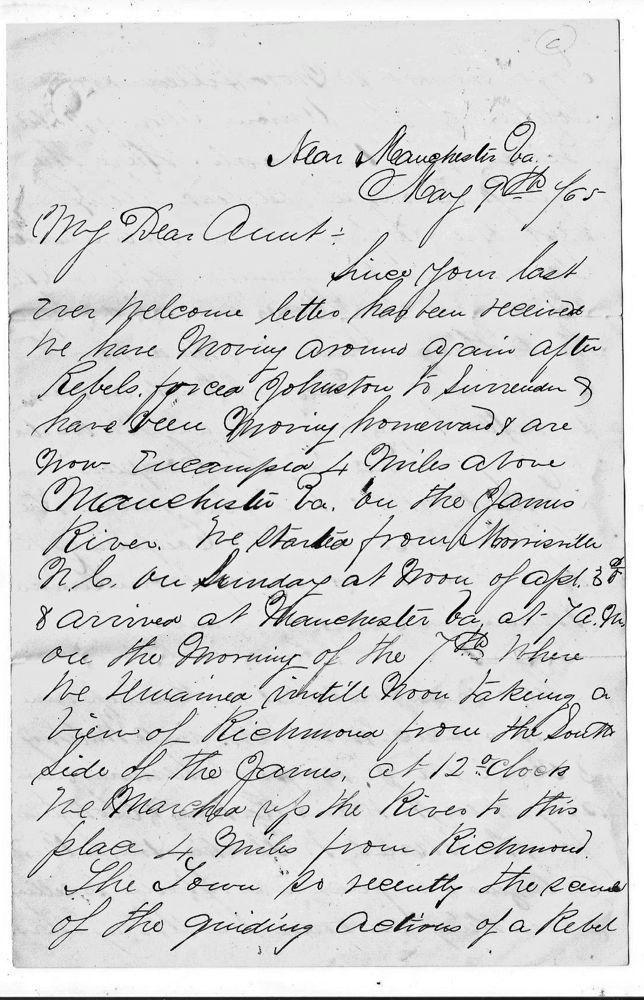 Near Manchester Va.
May 9th /65
My Dear Aunt:
Since Your last
ever Welcome letter has been received
We have Moving around again after
Rebels. forced Johnston to Surrender &
have been Moving homeward & are
Now Encamped 4 Miles above
Manchester Va. on the James
River. We started from Morrisville
N.C. on Sunday at Noon of apl. 30th
& arrived at Manchester Va. at 7 a.m.
on the Morning of the 7th Where
We remained untill Noon taking a
View of Richmond from the South
Side of the James. at 12 o'clock
We Marched up the River to this
place 4 Miles from Richmond.
The Town so recently the scene
of the guiding actions of a Rebel